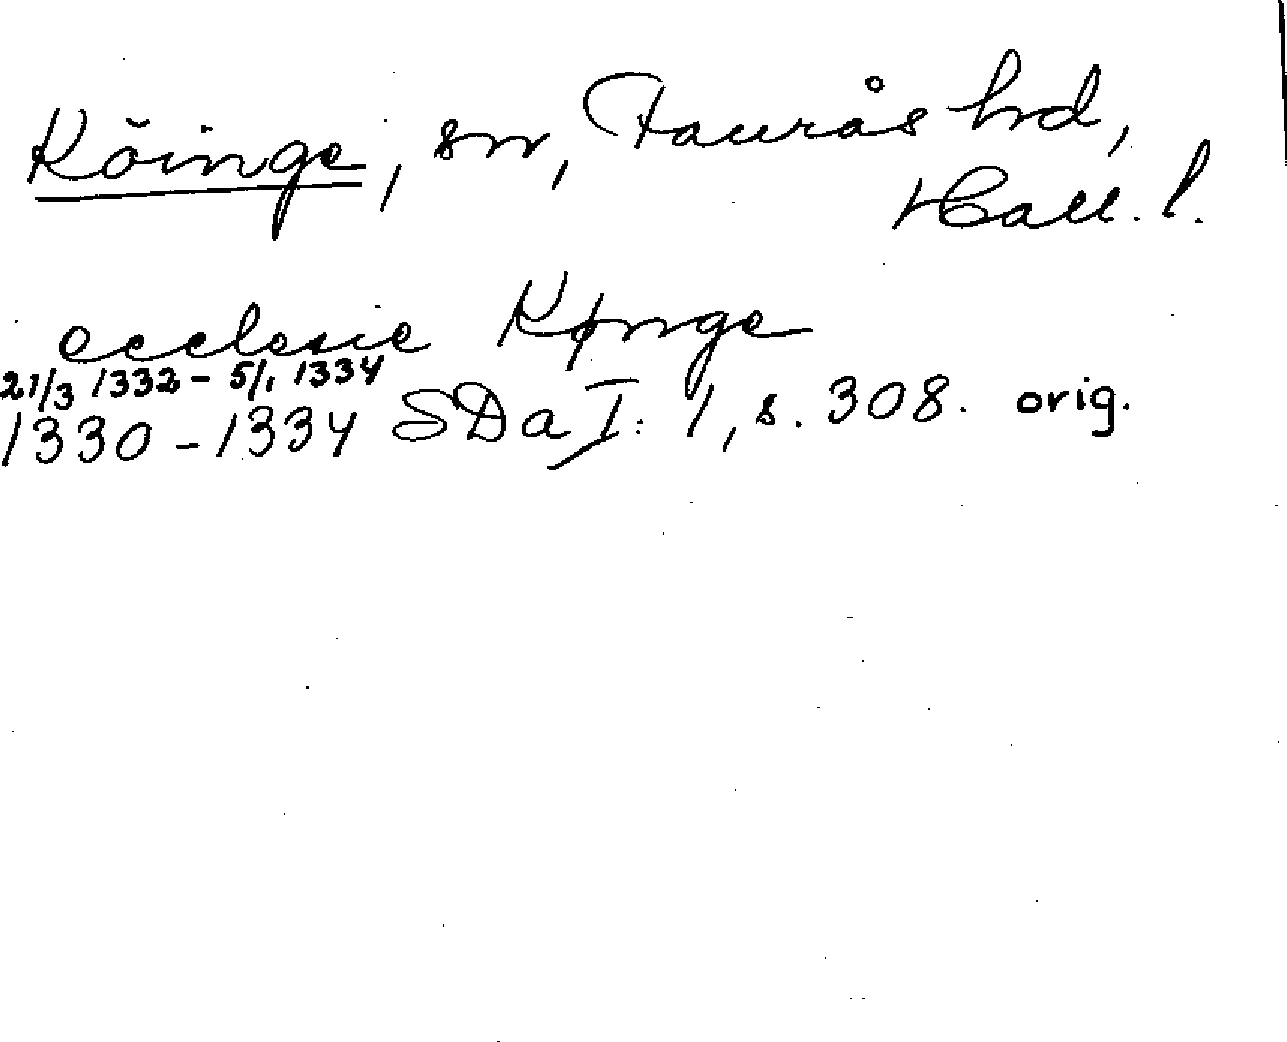 Köinge, sn, Faurås hd,
Hall. l.
ecclesie Kønge
21/3 1332 - 5/1 1334
1330 - 1334 SDa I: 1, s. 308. orig.